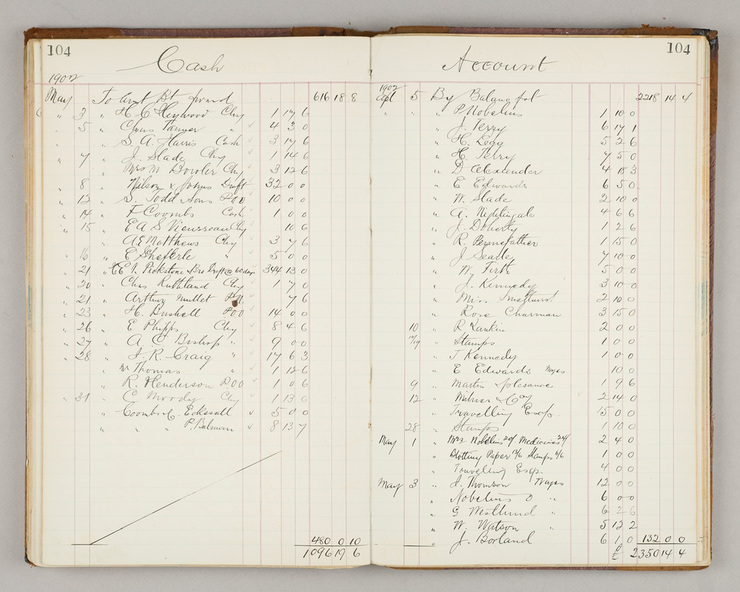 104
Cash
1902
May To Amt Bt forwd 616 18 8
" 3 " H. C. Heywood Chq 1 17 6
" 5 " Chas Tanner " 4 3 0
" S. A. Harris Cash 3 17 6
" 7 " J. Slade Chq 1 14 6
" Mrs M Dowler Chq 3 12 6
" 8 " Wilson & Johns Draft 32 0 0
" 12 " S. Todd Sons POO 10 0 0
" 14 " F Coombs Cash 1 0 0
" 15 " E A S Chq 10 6
" A E Matthews Chq 3 7 6
" 16 " E " 5 0 0
" 21 344 13 0
" 20 " Chas Ruthland Chq 1 7 0
" 21 " Arthur Mullet 7 6
" 23 " H. Bushell POO 14 0 0
" 26 " E Phipps Chq 8 4 6
" 27 " A C Bishop " 9 0 0
" 28 " J. R. Craig " 17 6 3
" Thomas " 1 12 6
" R. Henderson POO 1 0 6
" 31 " C Moody Chq 1 13 0
" Coombs 5 0 0
" " " 8 13 7
480 0 10
1096 19 6
104
Account
1902
Apl 5 By Balance fwd 2218 14 4
" " " P. Nobelius 1 10 0
" J. Perry 6 17 1
" H. Legg 5 2 6
" H. Perry 7 5 0
" D Alexander 4 18 3
" E Edwards 6 5 0
" W. Slade 2 10 0
" A. Nightingale 4 6 6
" J. Doherty 1 2 6
" R. Pennefather 1 15 0
" J. Searle 7 10 0
" W. Firth 5 0 0
" J. Kennedy 3 10 0
" Miss Smethurst 2 10 0
" Rose Chairman 3 15 0
10 " R Rankin 2 0 0
" Stamps 1 0 0
" J Kennedy 1 0 0
" E Edwards Wages 10 0
9 " Martin 1 9 6
12 " 2 14 0
" Travelling Exps 15 0 0
28 " Stamps 1 10 0
May 1 " Mrs Nobelius Medicine 2 4 0
" Blotting Paper Stamps 1 0 0
" Traveling Exps 4 0 0
May 3 " J. Thomson Wages 12 0 0
" Nobelius " 6 0 0
" G " 6 2 6
" W. Watson " 5 12 2
" J. Borland 6 1 0 132 0 0
£ 2350 14 4